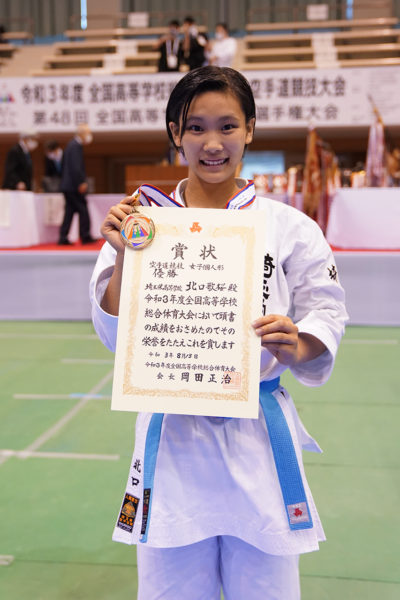 令和3年度 全国高等学校 空手道競技大会
第48回 全国高 選手権大会
賞状
空手道競技 女子個人形
優勝
埼玉栄高等学校 北口歌桜 殿
令和3年度全国高等学校
総合体育大会において頭書
の成績をおさめたのでその
栄誉をたたえこれを賞します
令和3年8月15日
令和3年度全国高等学校総合体育大会
会長 岡田正治
北口